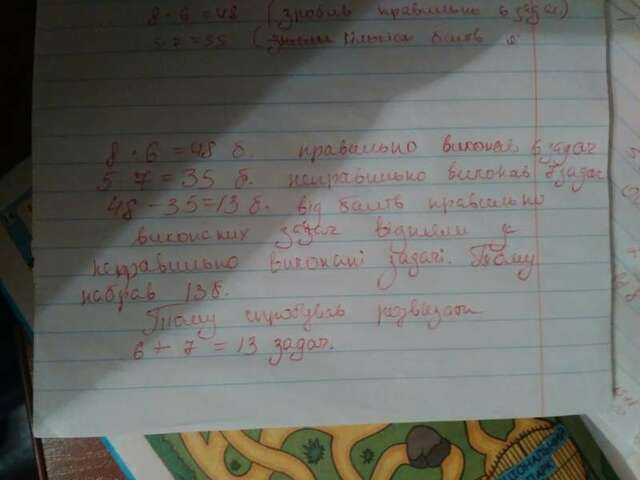 8 · 6 = 48 (зробив правильно 6 задач)
5·7 = 35 ( кількість балів
8 · 6 = 48 б. правильно виконав 6 задач
5 7 = 35 б. неправильно виконав 7 задач
48 - 35 = 13 б. від балів правильно
виконаних задач відняли
неправильно виконані задачі. Тому
набрав 13 б.
Тому спробував розвязати
6 + 7 = 13 задач.
НАЦІОНАЛЬНИЙ
ПАРК